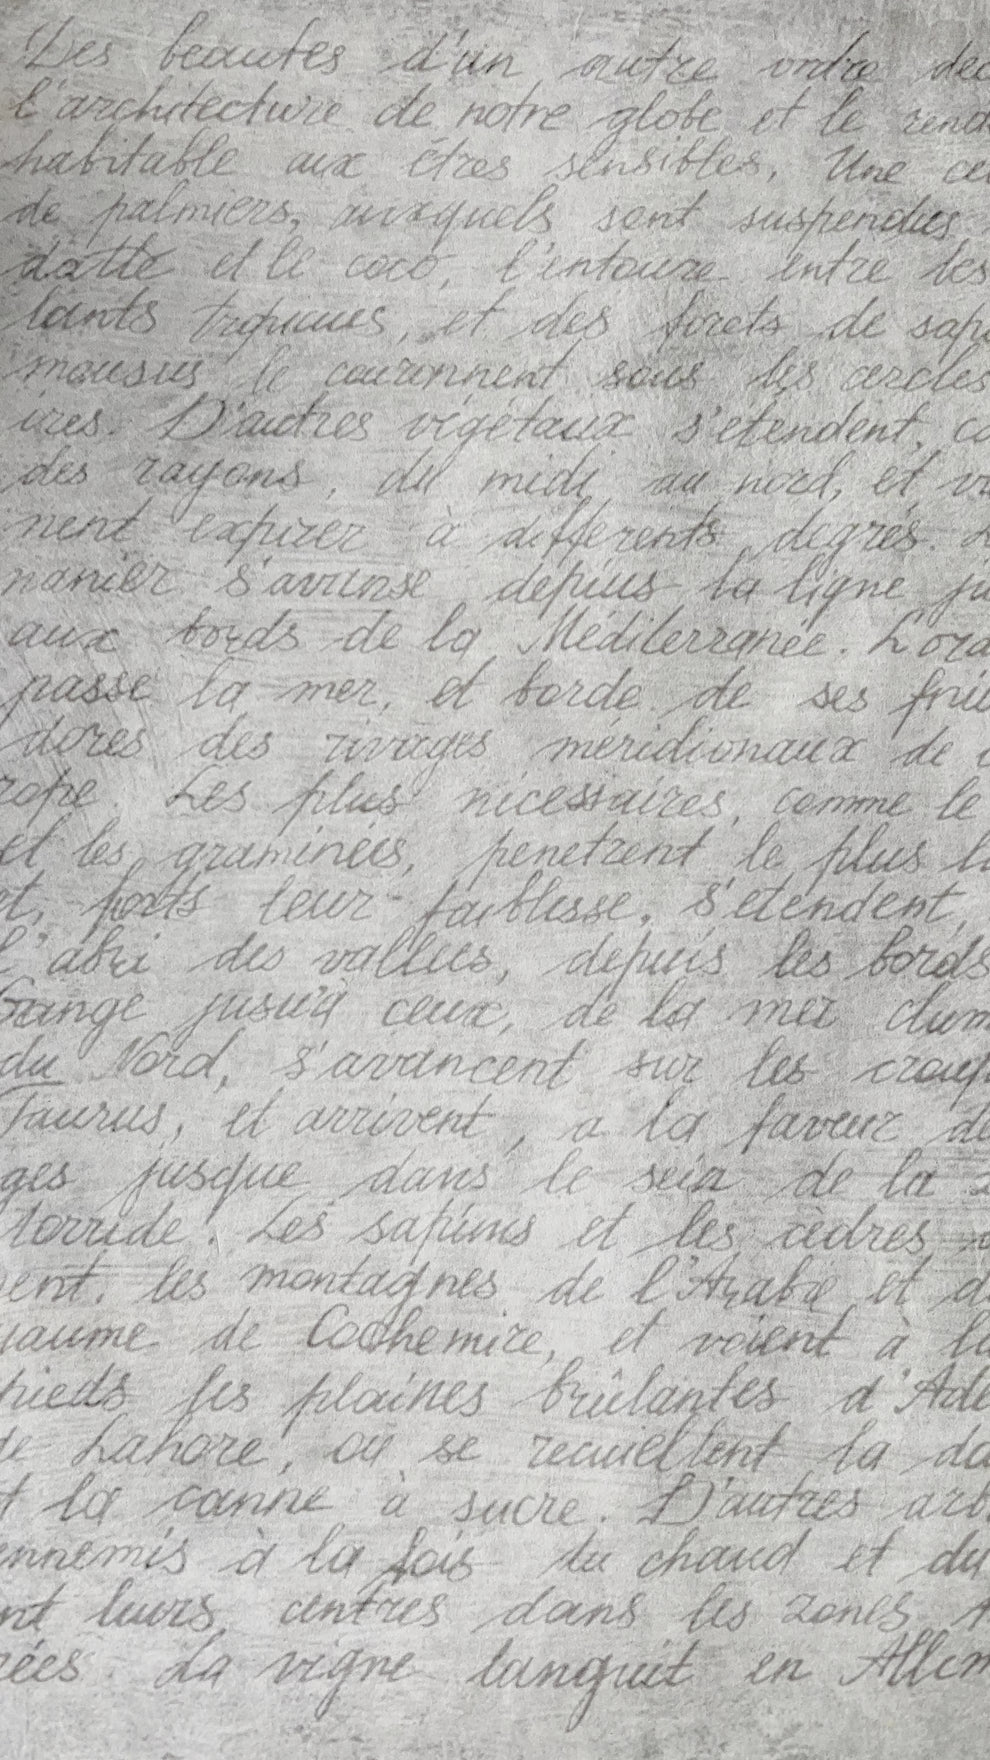 Des beautés d'un autre ordre dec
l'architecture de notre globe et le rend
habitable aux êtres sensibles. Une cei
de palmiers, auxquels sont suspendues
datte et le coco, l'entoure entre les
lants tropiques, et des forets de sapi
mousus le couronnent sous les cercles
ires. D'autres végétaux s'etendent, co
des rayons, du midi au nord, et vi
nent expirer à differents degrés. L
nanier s'avanse depius la ligne ju
aux bords de la Méditerranée. L'ora
passe la mer, et borde de ses frui
dores des rivages méridionaux de l
rope. Les plus nécessaires, comme le
et les graminées, penetrent le plus l
et, forts leur faiblesse, s'etendent,
l'abri des vallees, depuis les bords
Gange jusu'à ceux, de la mer
du Nord, s'avancent sur les croup
Taurus, et arrivent, a la faveur de
ges jusque dans le sein de la
torride. Les sapins et les cèdres
sent, les montagnes de l'Arabie et d
yaume de Cachemire, et voient à l
pieds les plaines brûlantes d'Ade
de Lahore, où se recueillent la da
t la canne à sucre. D'autres arb
ennemis à la fois du chaud et du
nt leurs centres dans les zones
rées. La vigne languit en Allem